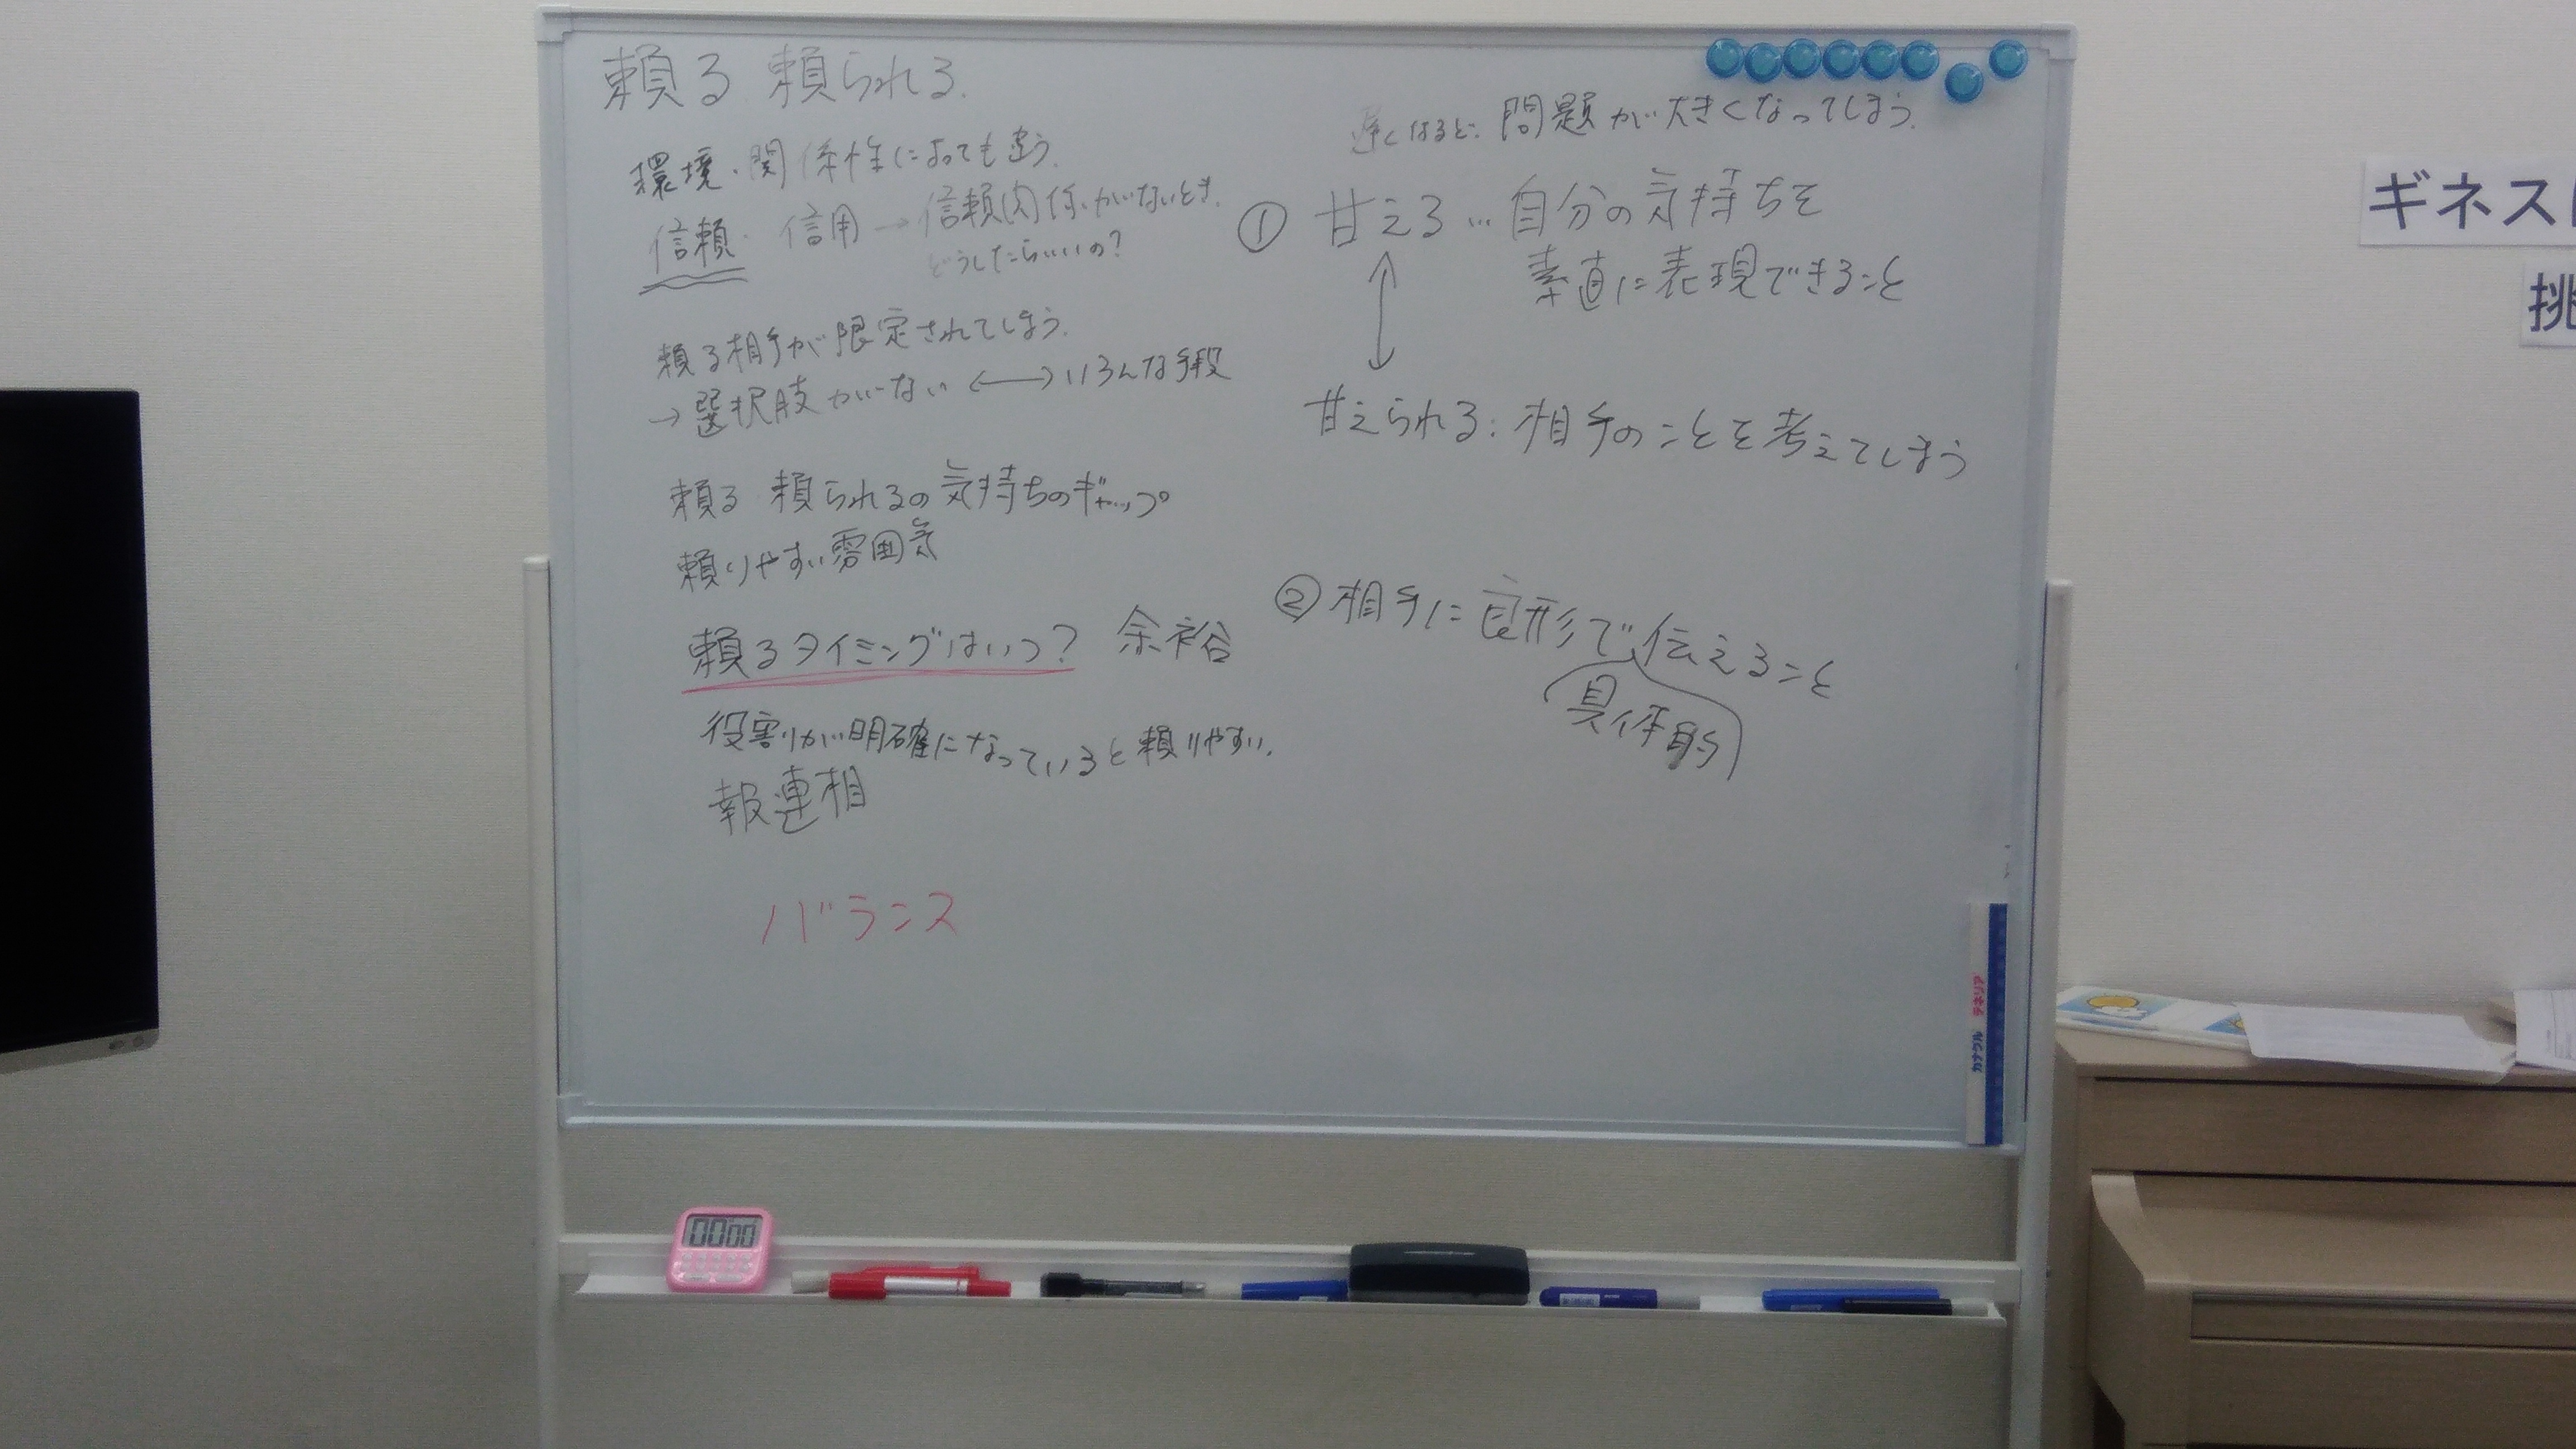 頼る 頼られる.
環境・関係性によっても違う.
信頼・信用→信頼関係がないとき.
どうしたらいいの?
頼る相手が限定されてしまう.
→選択肢がない ←→いろんな手段
頼る 頼られるの気持ちのギャップ
頼りやすい雰囲気
頼るタイミングはいつ? 余裕
役割りが明確になっていると頼りやすい.
報連相
バランス
遅くなるほど. 問題が大きくなってしまう.
① 甘える…自分の気持ちを
素直に表現できること
甘えられる:相手のことを考えてしまう
② 相手に良形で伝えること
具体的
ギネス
挑
00 00